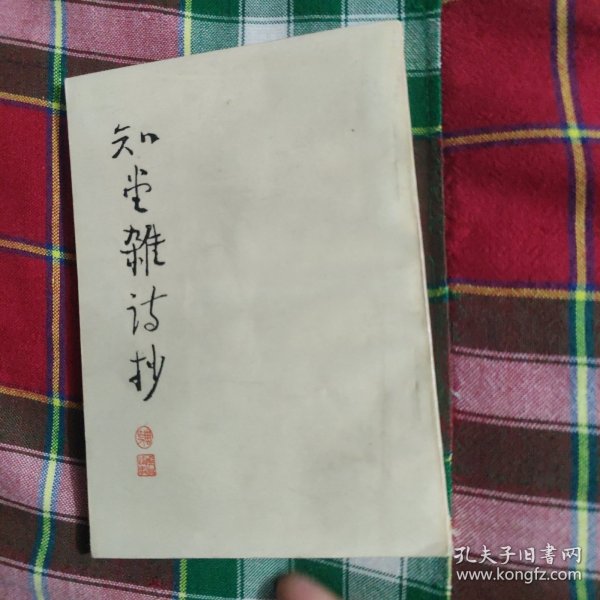 知堂雜诗抄
孔夫子旧書网
www.kongfz.com